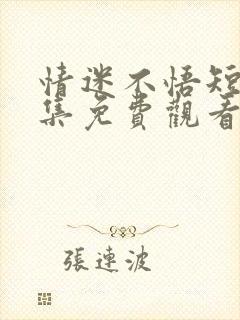 情迷不悟短
集免費觀看
張連波